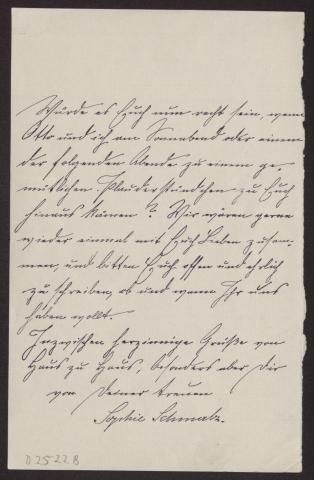 Würde es Euch nun recht sein, wenn
Otto und ich am Sonnabend oder einem
der folgenden Abende zu einem ge-
mütlichen Plauderstündchen zu Euch
hinaus kämen? Wir wären gerne
wieder einmal mit Euch Lieben zusam-
men, und bitten Euch offen und ehrlich
zu schreiben, ob und wann Ihr uns
haben wollt.
Inzwischen herzinnige Grüße von
Haus zu Haus, besonders aber Dir
von Deiner treuen
Sophie Schmalz.
D 2522 B